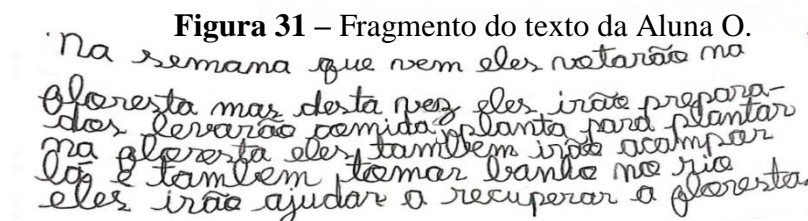 Figura 31 – Fragmento do texto da Aluna O.
Na semana que vem eles votarão na
floresta mas desta vez eles irão prepara-
dos levarão comida, planta para plantar
na floresta eles tambem irão acampar
lá e tambem tomar banho no rio
eles irão ajudar a recuperar a floresta.